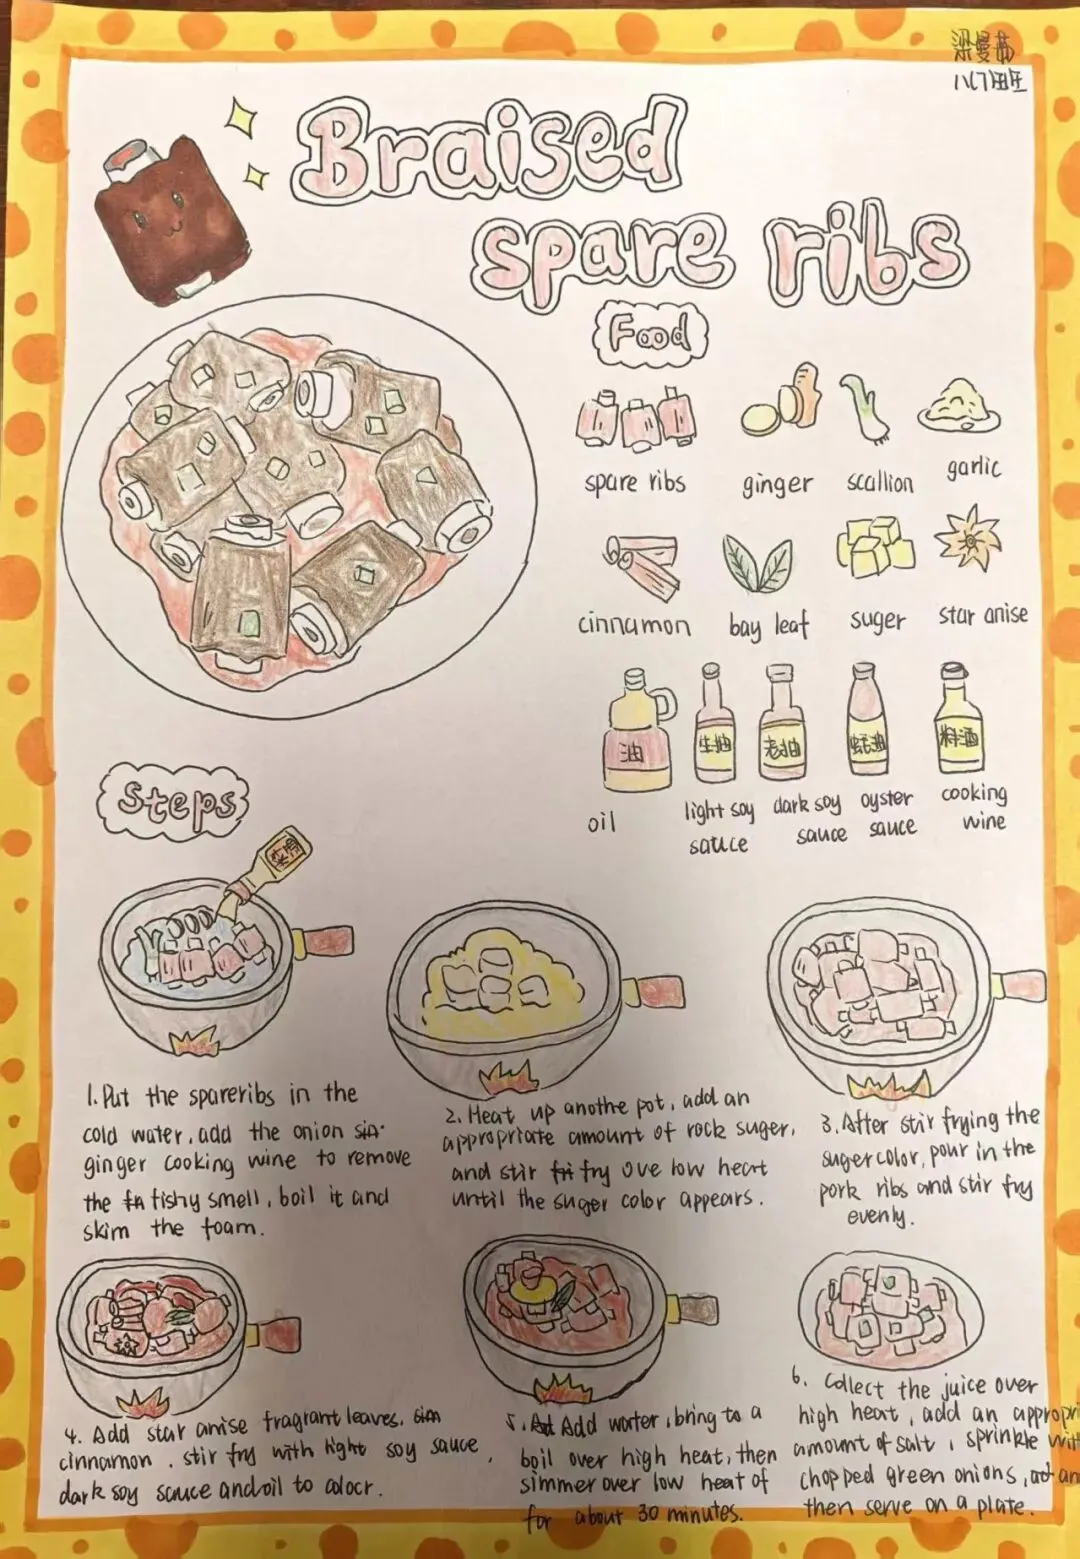 梁曼茜
八(7)班
Braised
spare ribs
Food
spare ribs
ginger
scallion
garlic
cinnamon
bay leaf
suger
star anise
油
生抽
老抽
蚝油
料酒
oil
light soy
satuce
dark soy
sauce
oyster
sauce
cooking
wine
Steps
1. Put the spareribs in the
cold water, add the onion sin.
ginger cooking wine to remove
the fn fishy smell, boil it and
skim the foam.
2. Heat up anothe pot, add an
appropriate amount of rock suger,
and stir fri fry ove low heart
until the suger color appears.
3. After stir frying the
suger color, pour in the
pork ribs and stir fry
evenly.
4. Add star anise fragrant leaves, sim
cinnamon, stir fry with light soy sauce,
dark soy sauce and oil to colocr.
5. Add water, bring to a
boil over high heat, then
simmer over low heat of
for about 30 minutes.
6. Collect the juice over
high heat, add an appropri
amount of salt, sprinkle wit
chopped green onions, an
then serve on a plate.